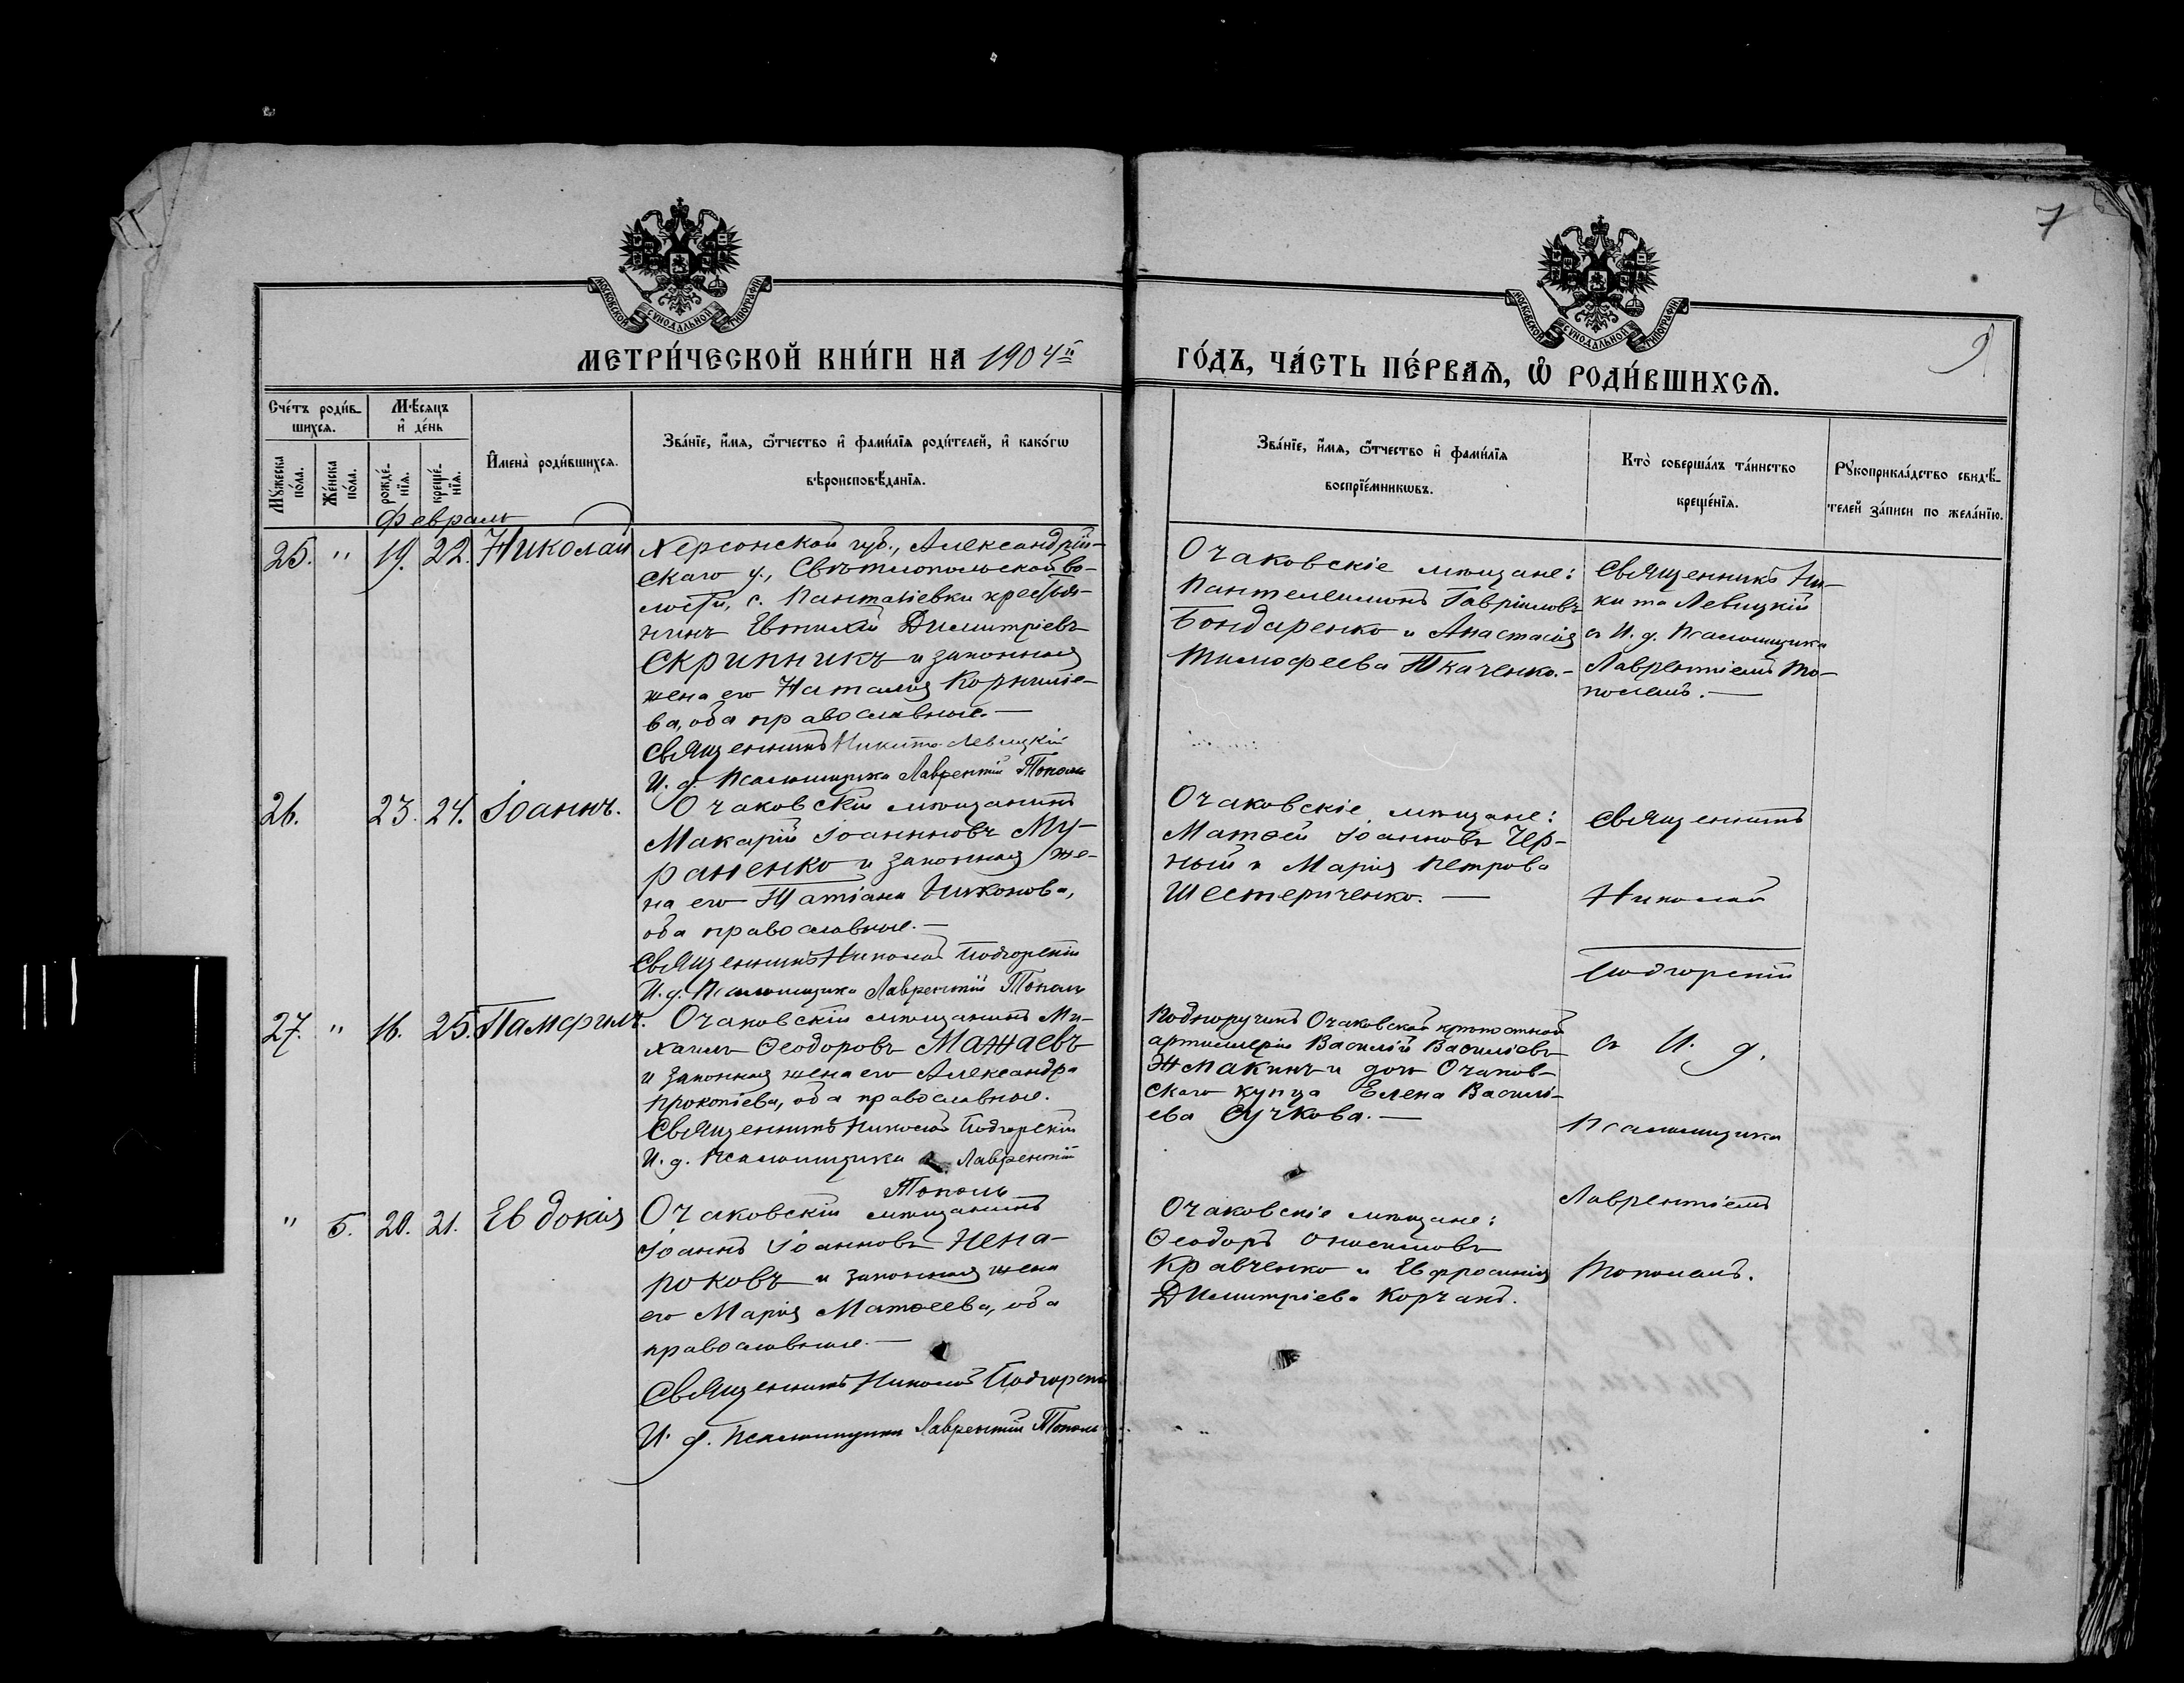 7
МОСКОВСКОЙ СѴНОДАЛЬНОЙ ТИПОГРАФІИ
МОСКОВСКОЙ СѴНОДАЛЬНОЙ ТИПОГРАФІИ
МЕТРИ́ЧЕСКОЙ КНИ́ГИ НА 1904й
ГО́ДЪ, ЧА́СТЬ ПЕ́РВАЯ, Ѽ РОДИ́ВШИХСЯ.
9
Сче́тъ роди́в-
шихся.
Мѣ́сяцъ
и҆ де́нь
Мꙋ́жеска по́ла.
Же́нска по́ла.
рожде́-нїя.
креще́-нїя.
И҆мена̀ роди́вшихся.
Зва́нїе, и҆́мя, ѻ҆́тчество и҆ фами́лїя роди́телей, и҆ како́гѡ
вѣроисповѣ́данїя.
Зва́нїе, и҆́мя, ѻ҆́тчество и҆ фами́лїя
воспрїе́мникѡвъ.
Кто̀ соверша́лъ та́инство
креще́нїя.
Рꙋкоприкла́дство свидѣ́-
телей за́писи по жела́нїю.
Февраль
25. " 19. 22. Николай
Херсонской губ., Александрій-
скаго у., Свѣтлопольской во-
лости, с. Пантазіевки крестья-
нинъ Евтихій Димитріевъ
Скрипникъ и законная
жена его Наталія Корниліе-
ва, оба православные.—
Священникъ Никита Левицкій
И. д. Псаломщика Лаврентій Тополь
Очаковскіе мѣщане:
Пантелеимонъ Гавріиловъ
Бондаренко и Анастасія
Тимофеева Ткаченко.—
Священникъ Ни-
кита Левицкій
съ И. д. Псаломщика
Лаврентіемъ То-
полемъ.—
26. 23. 24. Іоаннъ.
Очаковскій мѣщанинъ
Макарій Іоанновъ Му-
раненко и законная же-
на его Татіана Никонова,
оба православные.—
Священникъ Николай Подгорскій
И. д. Псаломщика Лаврентій Тополь
Очаковскіе мѣщане:
Матѳей Іоанновъ Чер-
ный и Марія Петрова
Шестериченко.—
Священникъ
Николай
Подгорскій
27. " 16. 25. Памфилъ.
Очаковскій мѣщанинъ Ми-
хаилъ Ѳеодоровъ Мажаевъ
и законная жена его Александра
Прокопіева, оба православные.
Священникъ Николай Подгорскій
И. д. Псаломщика Лаврентій
Тополь
Подпоручикъ Очаковской крѣпостной
артиллеріи Василій Василіевъ
Жмакинъ и дочь Очаков-
скаго купца Елена Василі-
ева Сучкова.—
съ И. д.
Псаломщика
Лаврентіемъ
Тополемъ.
" 5. 20. 21. Евдокія
Очаковскій мѣщанинъ
Іоаннъ Іоанновъ Нена-
роковъ и законная жена
его Марія Матѳеева, оба
православные.—
Священникъ Николай Подгорскій
И. д. Псаломщика Лаврентій Тополь
Очаковскіе мѣщане:
Ѳеодоръ Онисимовъ
Кравченко и Евфросинія
Димитріева Корчакъ.